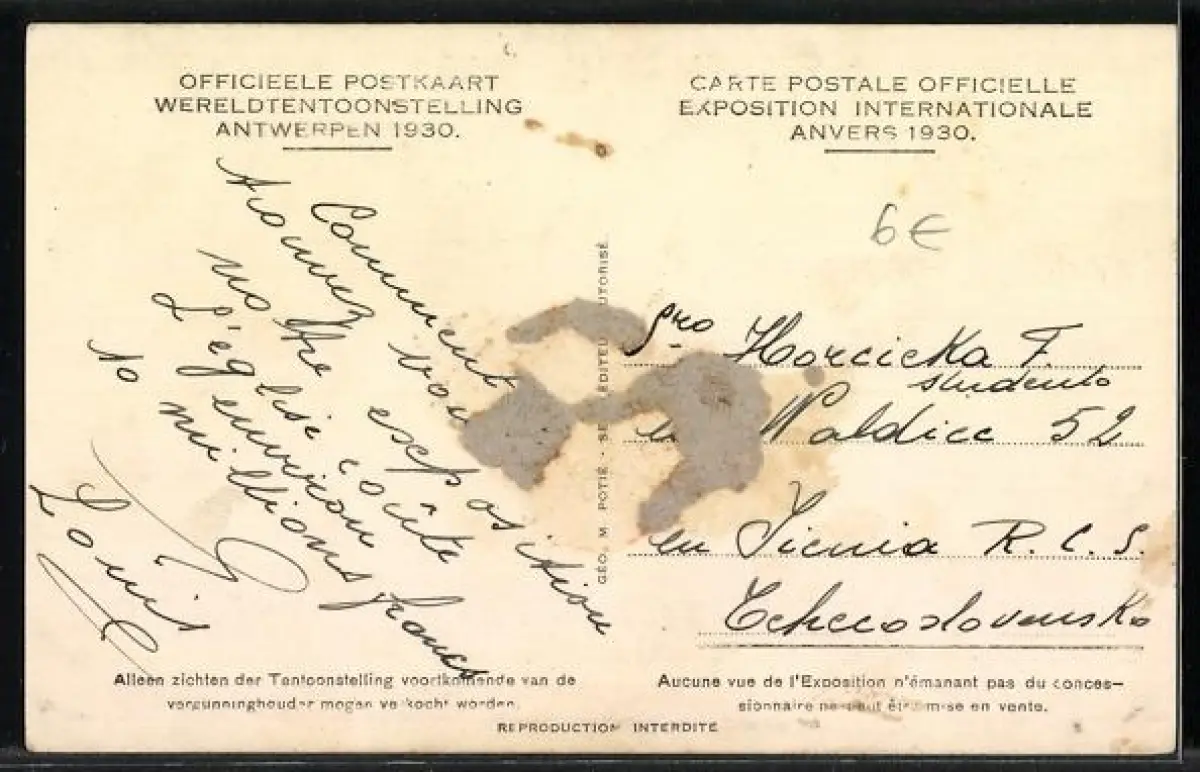 OFFICIEELE POSTKAART
WERELDTENTOONSTELLING
ANTWERPEN 1930.
CARTE POSTALE OFFICIELLE
EXPOSITION INTERNATIONALE
ANVERS 1930.
6€
Comment
trouvez vou
notre exposition
L'église coûte
environ
10 millions francs
Louis
GÉO. M. POTIÉ - SE ÉDITEU UTORISÉ.
Sro Horcicka F.
studento
Valdice 52
en Jicnia R. C. S.
Tchecoslovensko
Alleen zichten der Tentoonstelling voortkomende van de
vergunninghouder mogen verkocht worden.
Aucune vue de l'Exposition n'émanant pas du conces-
sionnaire ne peut être mise en vente.
REPRODUCTION INTERDITE